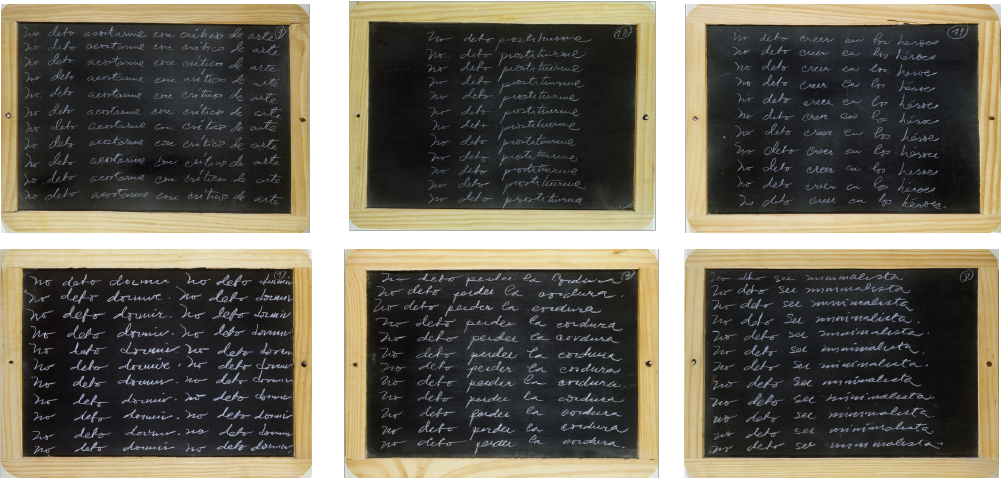 No debo acostarme con críticos de arte
No debo acostarme con críticos de arte
No debo acostarme con críticos de arte
No debo acostarme con críticos de arte
No debo acostarme con críticos de arte
No debo acostarme con críticos de arte
No debo acostarme con críticos de arte
No debo acostarme con críticos de arte
No debo acostarme con críticos de arte
No debo acostarme con críticos de arte
No debo acostarme con críticos de arte
No debo prostituirme
No debo prostituirme
No debo prostituirme
No debo prostituirme
No debo prostituirme
No debo prostituirme
No debo prostituirme
No debo prostituirme
No debo prostituirme
No debo prostituirme
No debo prostituirme
No debo prostituirme
11
No debo creer en los héroes
No debo creer en los héroes
No debo creer en los héroes
No debo creer en los héroes
No debo creer en los héroes
No debo creer en los héroes
No debo creer en los héroes
No debo creer en los héroes
No debo creer en los héroes
No debo creer en los héroes
No debo creer en los héroes.
No debo dormir. No debo dormir
No debo dormir. No debo dormir
No debo dormir. No debo dormir
No debo dormir. No debo dormir
No debo dormir. No debo dormir
No debo dormir. No debo dormir
No debo dormir. No debo dormir
No debo dormir. No debo dormir
No debo dormir. No debo dormir
No debo dormir. No debo dormir
No debo dormir. No debo dormir
No debo perder la cordura
No debo perder la cordura.
No debo perder la cordura
No debo perder la cordura
No debo perder la cordura
No debo perder la cordura
No debo perder la cordura
No debo perder la cordura
No debo perder la cordura
No debo perder la cordura
No debo perder la cordura
No debo perder la cordura.
No debo ser minimalista
No debo ser minimalista
No debo ser minimalista
No debo ser minimalista.
No debo ser minimalista.
No debo ser minimalista.
No debo ser minimalista.
No debo ser minimalista
No debo ser minimalista.
No debo ser minimalista.
No debo ser minimalista.
No debo ser minimalista.